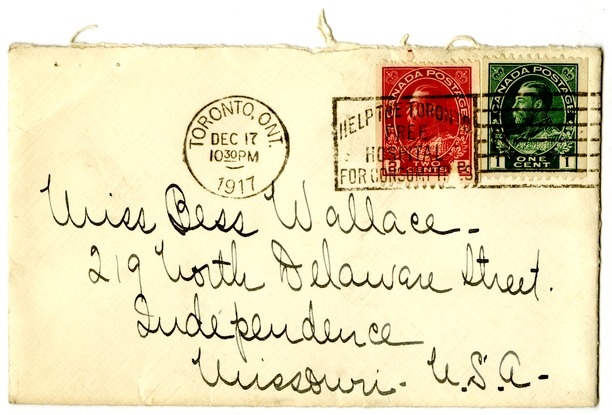 TORONTO, ONT.
DEC 17
10 30 PM
1917
HELP THE TORONTO
FREE
HOSPITAL
FOR CONSUMPTIVES
CANADA POSTAGE
2 TWO 2
CENTS
CANADA POSTAGE
1 ONE 1
CENT
Miss Bess Wallace-
219 North Delaware Street.
Independence
Missouri- U.S.A-